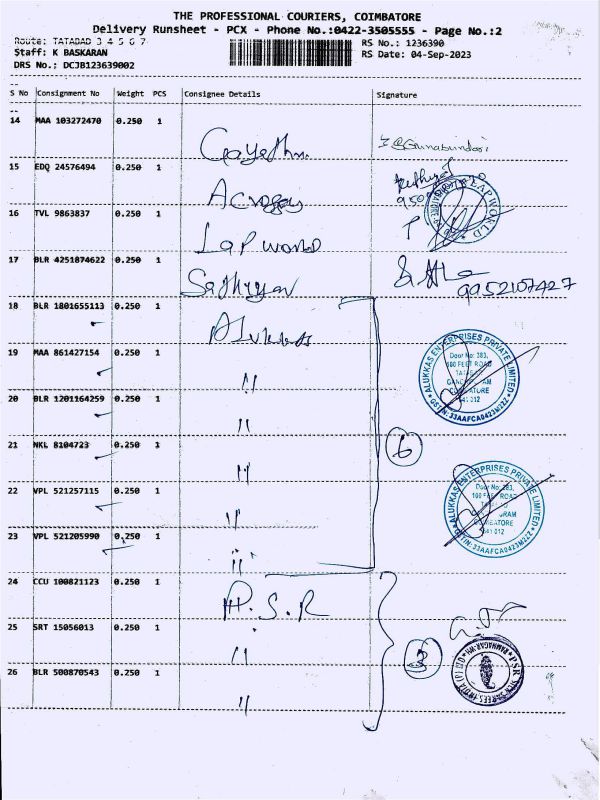 THE PROFESSIONAL COURIERS, COIMBATORE
Delivery Runsheet - PCX - Phone No.:0422-3505555 - Page No.:2
Route: TATABAD 3 4 5 6 7
RS No.: 1236390
Staff: K BASKARAN
RS Date: 04-Sep-2023
DRS No.: DCJB123639002
S No Consignment No Weight PCS Consignee Details Signature
14 MAA 103272470 0.250 1
15 EDQ 24576494 0.250 1
16 TVL 9863837 0.250 1
Lap world
LAP WORLD
17 BLR 4251874622 0.250 1
9952107427
18 BLR 1801655113 0.250 1
Alukkas
19 MAA 861427154 0.250 1
"
ALUKKAS ENTERPRISES PRIVATE LIMITED
Door No: 383,
100 FEET ROAD
641 012
GSTIN: 33AAFCA0423M2ZZ
20 BLR 1201164259 0.250 1
"
21 NKL 8104723 0.250 1
"
6
22 VPL 521257115 0.250 1
"
ALUKKAS ENTERPRISES PRIVATE LIMITED
Door No: 383,
100 FEET ROAD
641 012
GSTIN: 33AAFCA0423M2ZZ
23 VPL 521205990 0.250 1
"
24 CCU 100821123 0.250 1
P.S.R
25 SRT 15056013 0.250 1
"
3
PSR
26 BLR 500870543 0.250 1
"